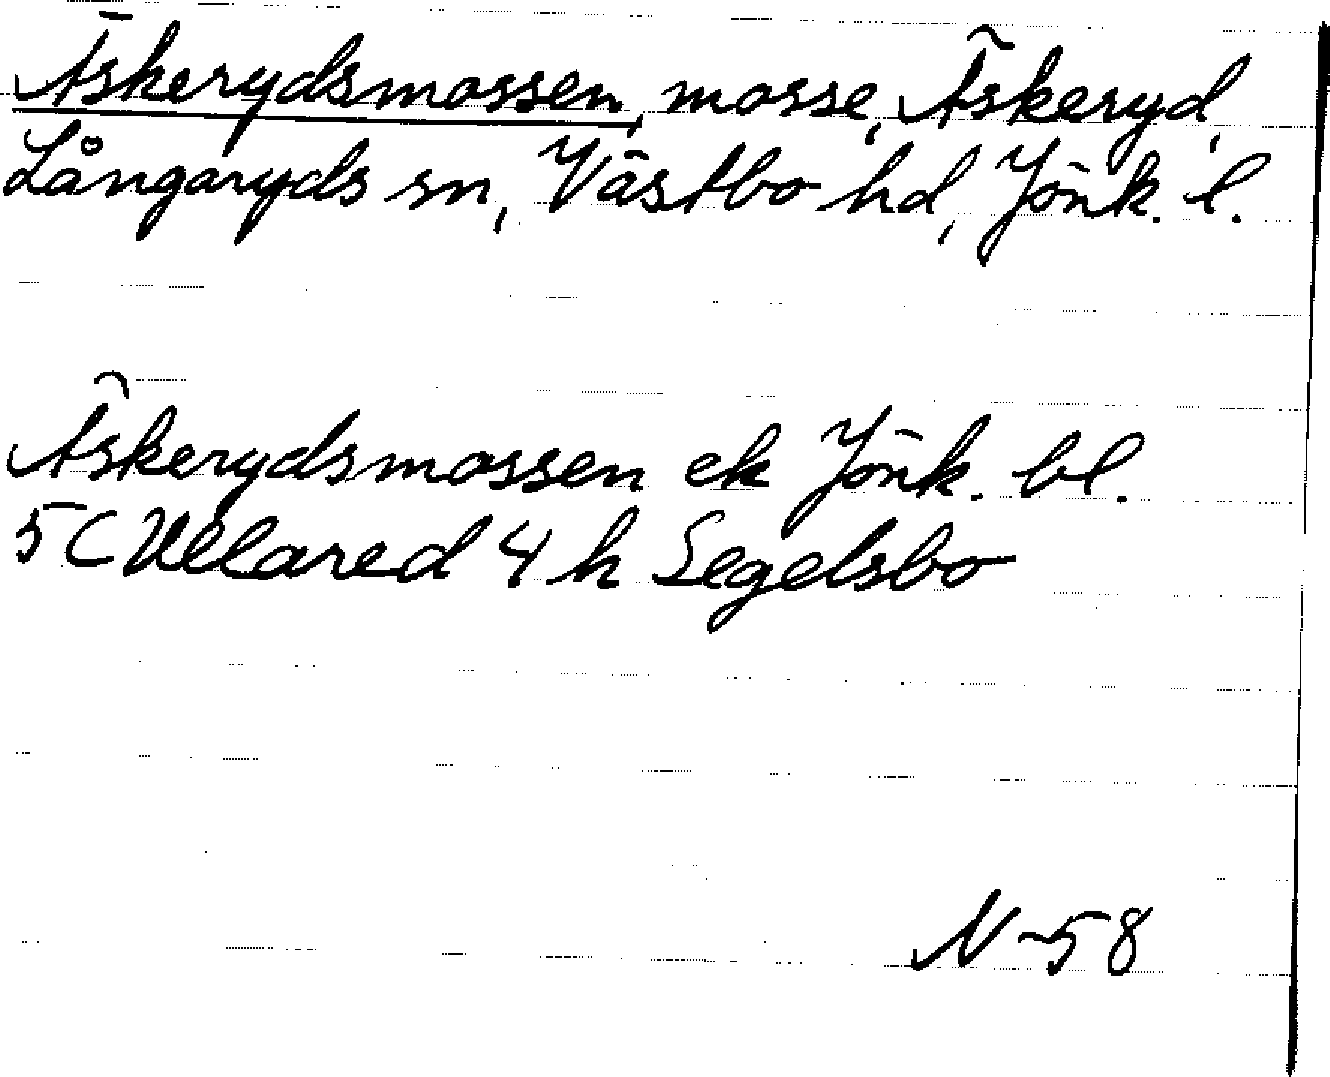 Äskerydsmossen, mosse, Äskeryd,
Långaryds sn, Västbo hd, Jönk. l.
Äskerydsmossen ek Jönk. bl.
5C Ullared 4 h Segelsbo
N-58